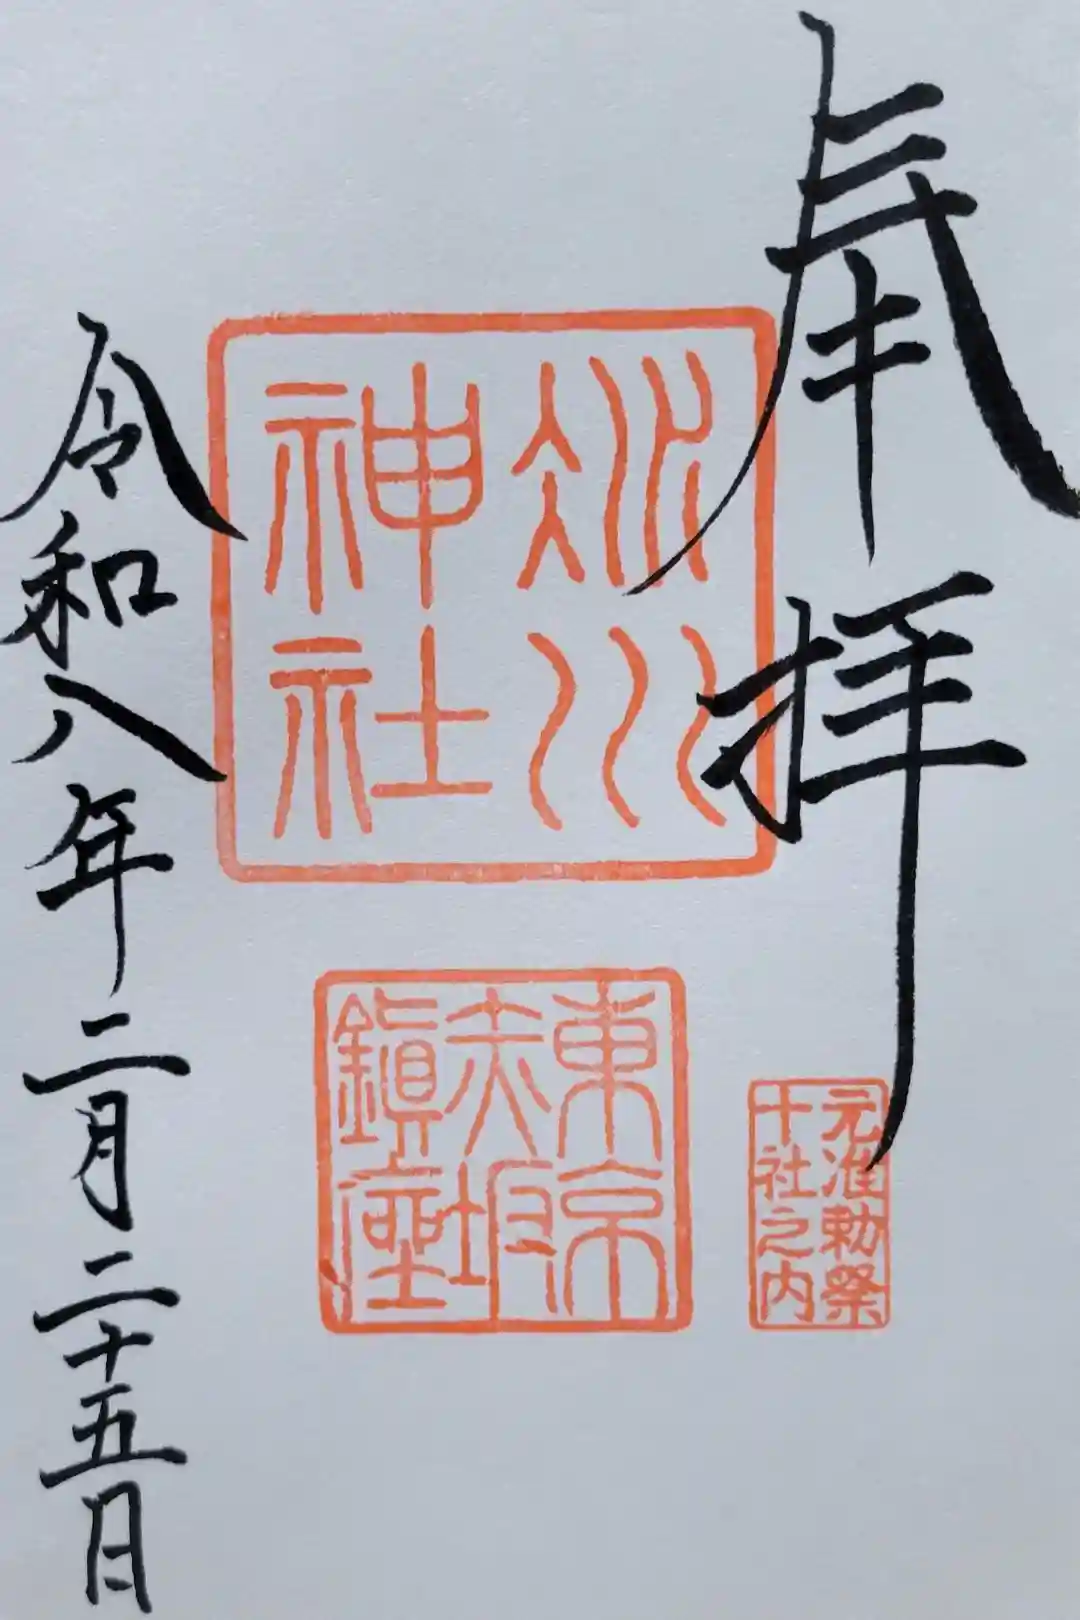 奉拝
元准勅祭
十社之内
氷川
神社
東京
赤坂
鎮座
令和八年二月二十五日